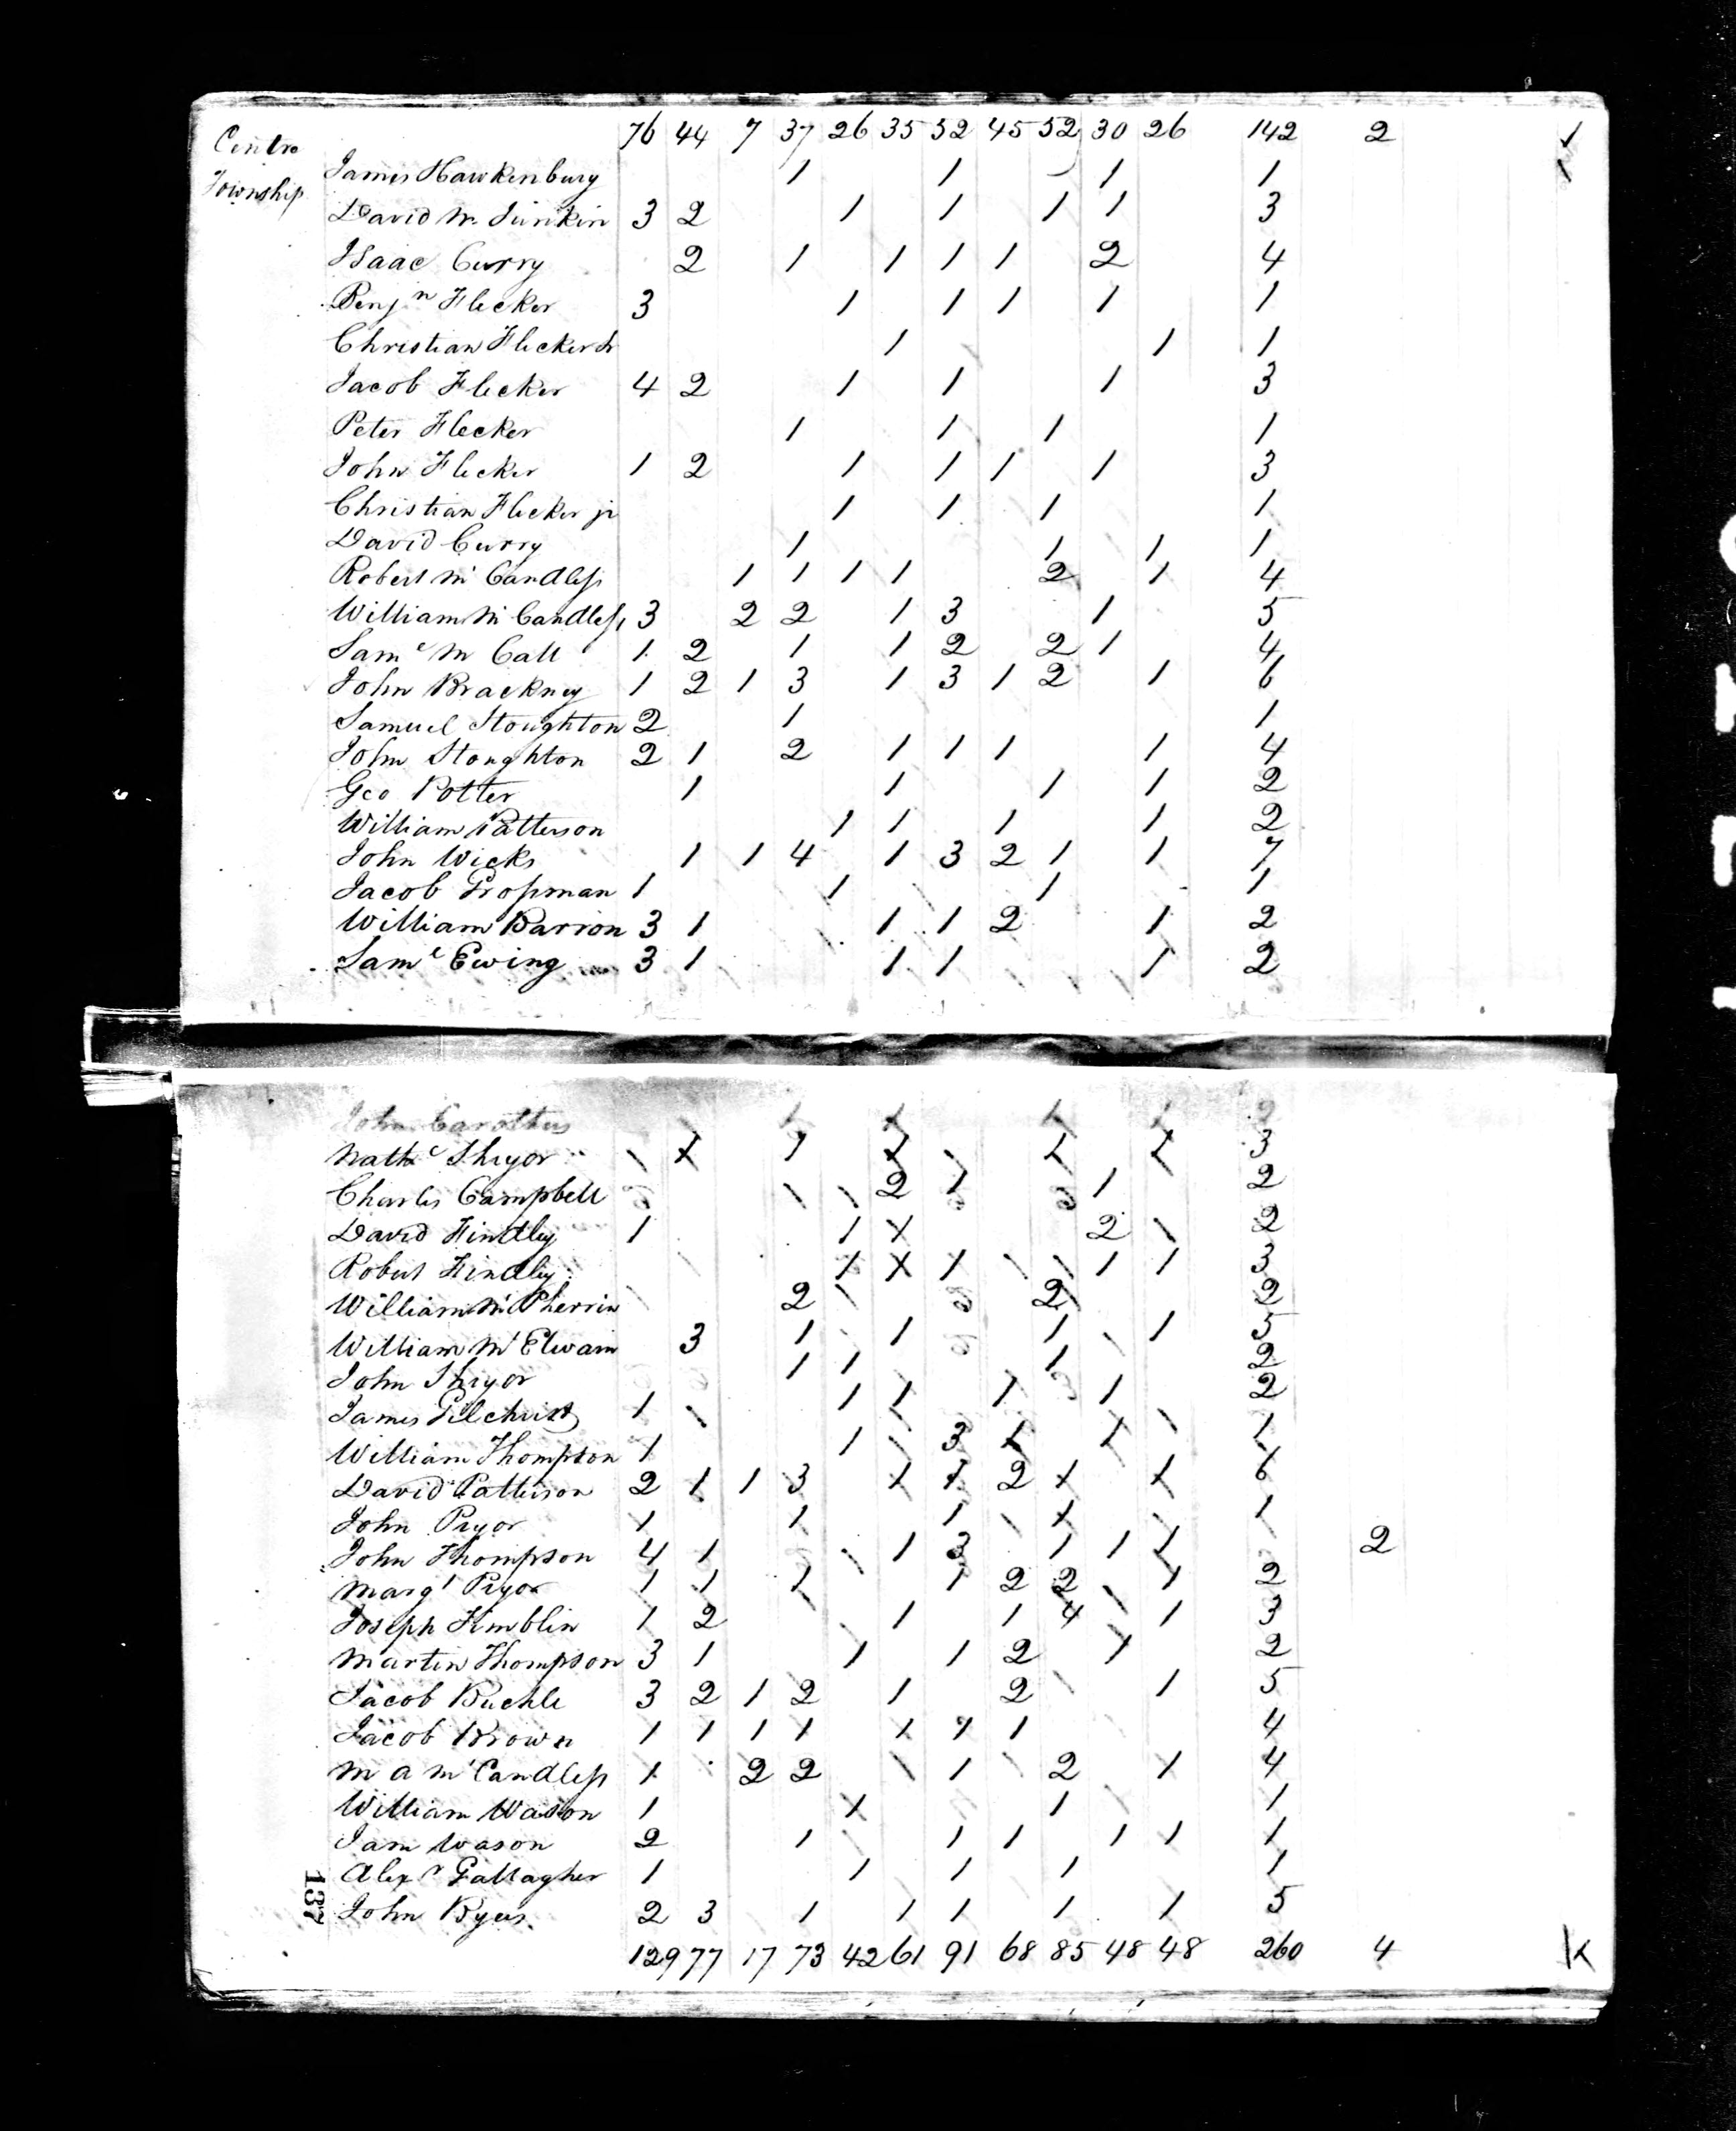 Centre 76 44 7 37 26 35 52 45 52 30 26 142 2 1
Township
James Hawkenbury 1 1 1 1 1
David Mc Junkin 3 2 1 1 1 1 3
Isaac Curry 2 1 1 1 1 2 4
Benjn Flecker 3 1 1 1 1 1
Christian Flecker Sr 1 1 1
Jacob Flecker 4 2 1 1 1 3
Peter Flecker 1 1 1 1
John Flecker 1 2 1 1 1 1 3
Christian Flecker jr 1 1 1 1
David Curry 1 1 1 1
Robert Mc Candless 1 1 1 1 2 1 4
William Mc Candless 3 2 2 1 3 1 5
Saml Mc Call 1 2 1 1 2 2 1 4
John Brackney 1 2 1 3 1 3 1 2 1 6
Samuel Stoughton 2 1 1
John Stoughton 2 1 2 1 1 1 1 4
Geo Potter 1 1 1 1 2
William Patterson 1 1 1 1 2
John Wicks 1 1 4 1 3 2 1 1 7
Jacob Grossman 1 1 1 1
William Barron 3 1 1 1 2 1 2
Saml Ewing 3 1 1 1 1 2
John Carothers 1 1 1 1 2
Nathl Shryor 3
Charles Campbell 2 1 1 2
David Findley 1 1 1 2 2
Robert Findley 1 1 1 1 1 3
William Mc Pherrin 2 2 2
William Mc Elwain 3 1 1 1 1 5
John Shryor 1 1 1 2
James Gilchrist 1 1 1 1 1 2
William Thompson 1 1 3 1 1 1
David Patterson 2 1 1 3 1 1 2 1 1 6
John Pryor 1 1 1 1 1
John Thompson 4 1 1 3 1 1 1 2
Margt Pryor 1 1 1 1 2 2 1 2
Joseph Kimblin 1 2 1 1 4 1 3
Martin Thompson 3 1 1 1 2 1 2
Jacob Buchle 3 2 1 2 1 2 1 5
Jacob Brown 1 1 1 1 1 1 1 4
M a Mc Candless 1 2 2 1 2 1 4
William Wason 1 1 1 1
Jam Wason 2 1 1 1 1 1 1
Alexr Gallagher 1 1 1 1 1
John Byers 2 3 1 1 1 1 1 5
129 77 17 73 42 61 91 68 85 48 48 260 4
137